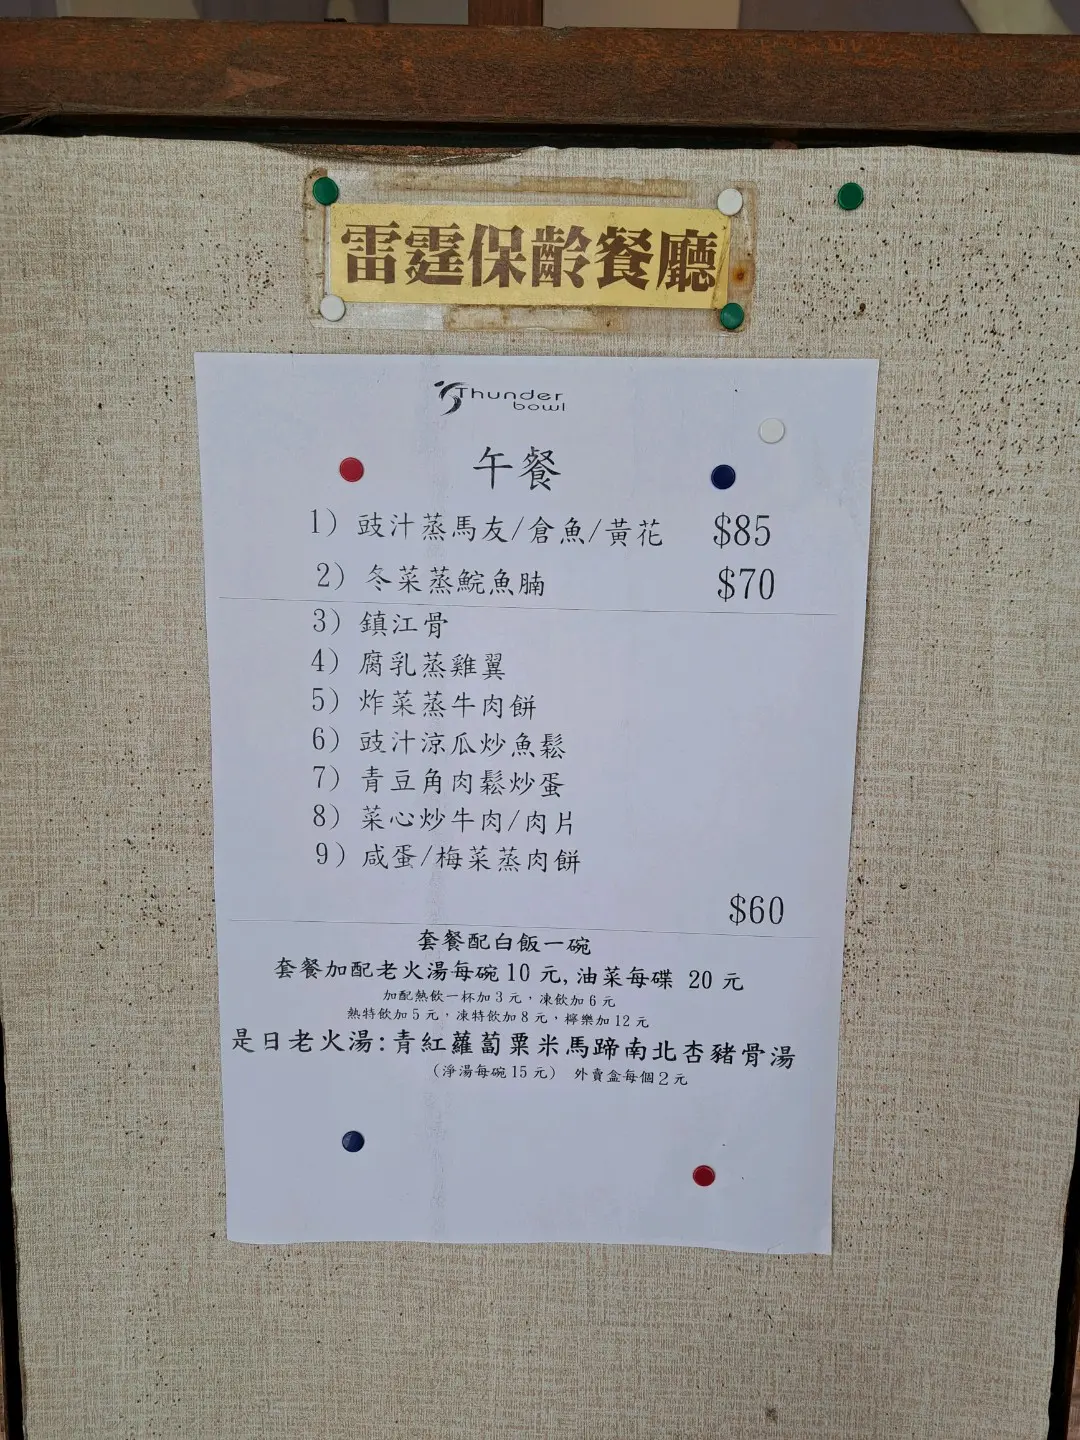 雷霆保齡餐廳
Thunder
bowl
午餐
1) 豉汁蒸馬友/倉魚/黃花 $85
2) 冬菜蒸鯇魚腩 $70
3) 鎮江骨
4) 腐乳蒸雞翼
5) 炸菜蒸牛肉餅
6) 豉汁涼瓜炒魚鬆
7) 青豆角肉鬆炒蛋
8) 菜心炒牛肉/肉片
9) 咸蛋/梅菜蒸肉餅
$60
套餐配白飯一碗
套餐加配老火湯每碗10元,油菜每碟 20元
加配熱飲一杯加3元，凍飲加6元
熱特飲加5元，凍特飲加8元，檸樂加12元
是日老火湯:青紅蘿蔔粟米馬蹄南北杏豬骨湯
(淨湯每碗15元) 外賣盒每個2元